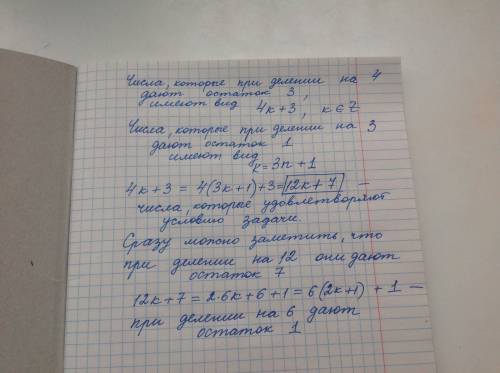 Числа, которые при делении на 4
дают остаток 3,
имеют вид 4к+3, к ∈ Z
Числа, которые при делении на 3
дают остаток 1
имеют вид
к = 3n + 1
4к+3 = 4(3к+1)+3 = 12к+7 —
числа, которые удовлетворяют
условию задачи.
Сразу можно заметить, что
при делении на 12 они дают
остаток 7
12к+7 = 2·6к+6+1 = 6(2к+1) + 1 —
при делении на 6 дают
остаток 1